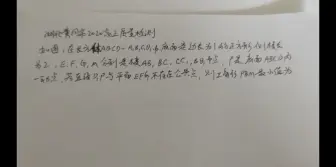 湖北黄冈2020高三质量检测
如图,在正方体ABCD-A₁B₁C₁D₁中底面是边长为1的正方形,侧棱长
为2,E,F,G,M分别是棱AB,BC,CC₁,BB₁中点,P是底面ABCD内
一动点,若直线D₁P与平面EFG不存在公共点,则三角形PBM面积最小值为